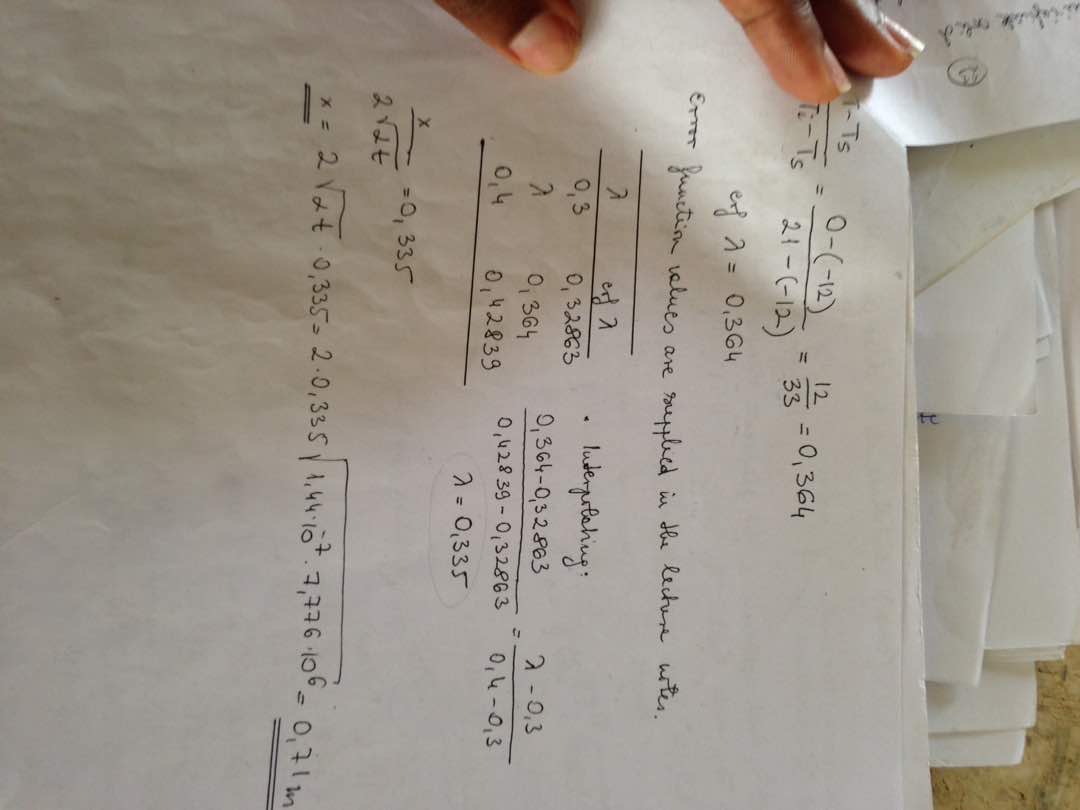 T - Ts / Ti - Ts = 0-(-12) / 21-(-12) = 12/33 = 0,364
erf λ = 0,364
error function values are supplied in the lecture notes.
λ erf λ
0,3 0,32863
λ 0,364
0,4 0,42839
• Interpolating:
0,364-0,32863 / 0,42839-0,32863 = λ-0,3 / 0,4-0,3
λ = 0,335
x / 2√αt = 0,335
x = 2√αt · 0,335 = 2·0,335 √1,44·10⁻⁷·7,776·10⁶ = 0,71m